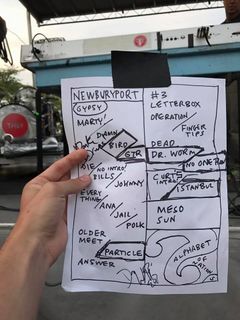 NEWBURYPORT
GYPSY
MARTY!
DAMN
BIRD
STR
DIE / NO INTRO!
PILLS
JOHNNY
EVERY
THING
ANA /
JAIL /
POLK
OLDER
MEET
PARTICLE
ANSWER
#3
LETTERBOX
OPERATION
FINGER
TIPS
DEAD
DR. WORM
NO ONE
CURT'S
INTRO
ISTANBUL
MESO
SUN
ALPHABET
OF
NATIONS